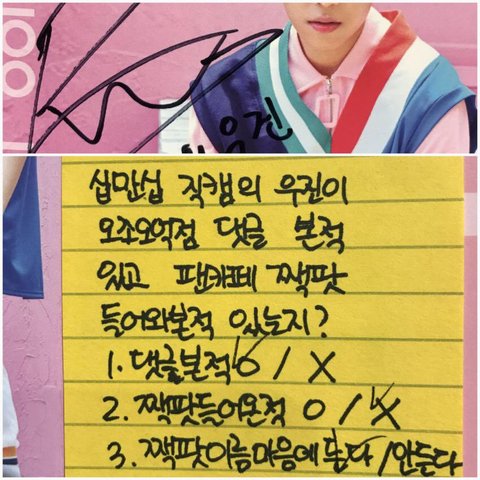 loo
유진
십만십 직캠의 우진이
오조오억점 댓글 본적
있고 팬카페 짹팟
들어와본적 있는지?
1. 댓글본적 O / X
2. 짹팟들어온적 O / X
3. 짹팟이름마음에 든다 / 안든다